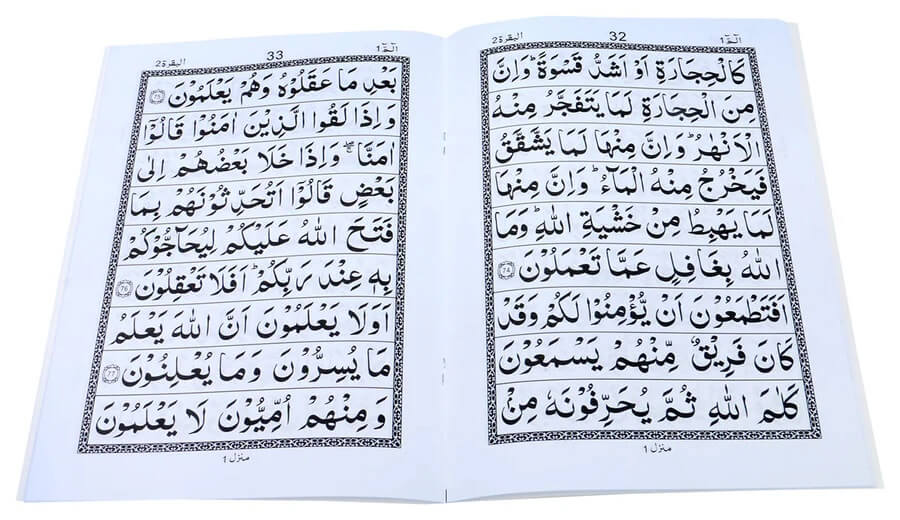 الٓمّٓ ١
32
البقرة ٢
كَالْحِجَارَةِ اَوْ اَشَدُّ قَسْوَةً ؕ وَاِنَّ
مِنَ الْحِجَارَةِ لَمَا يَتَفَجَّرُ مِنْهُ
الْاَنْهٰرُ ؕ وَاِنَّ مِنْهَا لَمَا يَشَّقَّقُ
فَيَخْرُجُ مِنْهُ الْمَآءُ ؕ وَاِنَّ مِنْهَا
لَمَا يَهْبِطُ مِنْ خَشْيَةِ اللّٰهِ ؕ وَمَا
اللّٰهُ بِغَافِلٍ عَمَّا تَعْمَلُوْنَ ﴿74﴾
اَفَتَطْمَعُوْنَ اَنْ يُّؤْمِنُوْا لَكُمْ وَقَدْ
كَانَ فَرِيْقٌ مِّنْهُمْ يَسْمَعُوْنَ
كَلٰمَ اللّٰهِ ثُمَّ يُحَرِّفُوْنَهٗ مِنْۢ
منزل ١
الٓمّٓ ١
33
البقرة ٢
بَعْدِ مَا عَقَلُوْهُ وَهُمْ يَعْلَمُوْنَ ﴿75﴾
وَاِذَا لَقُوا الَّذِيْنَ اٰمَنُوْا قَالُوْۤا
اٰمَنَّا ۖۚ وَاِذَا خَلَا بَعْضُهُمْ اِلٰى
بَعْضٍ قَالُوْۤا اَتُحَدِّثُوْنَهُمْ بِمَا
فَتَحَ اللّٰهُ عَلَيْكُمْ لِيُحَآجُّوْكُمْ
بِهٖ عِنْدَ رَبِّكُمْ ؕ اَفَلَا تَعْقِلُوْنَ ﴿76﴾
اَوَلَا يَعْلَمُوْنَ اَنَّ اللّٰهَ يَعْلَمُ
مَا يُسِرُّوْنَ وَمَا يُعْلِنُوْنَ ﴿77﴾
وَمِنْهُمْ اُمِّيُّوْنَ لَا يَعْلَمُوْنَ
منزل ١